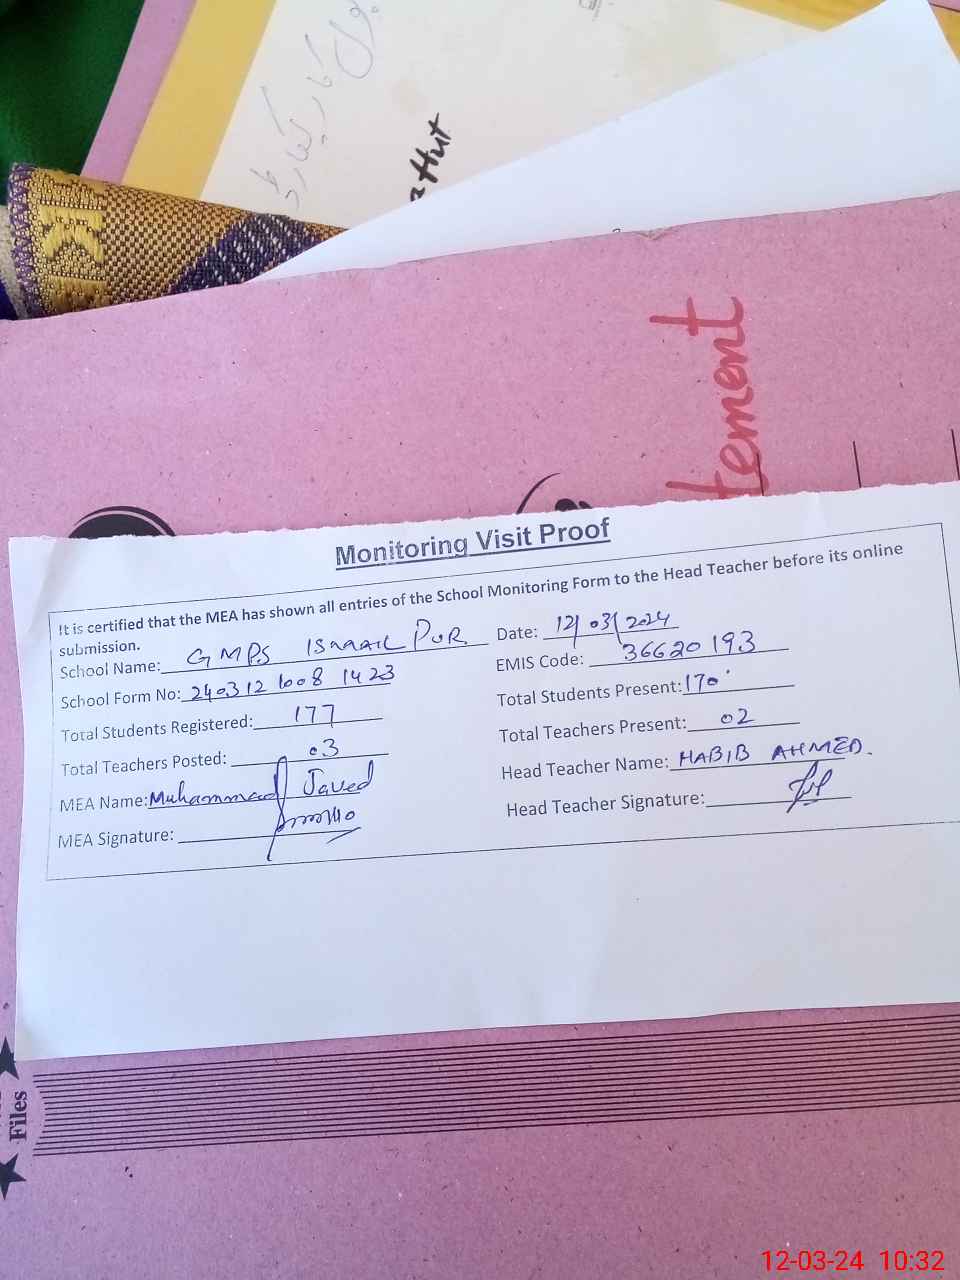 Hut
tement
Monitoring Visit Proof
It is certified that the MEA has shown all entries of the School Monitoring Form to the Head Teacher before its online
submission.
School Name: GMPS ISMAIL PUR Date: 12/03/2024
School Form No: 240312 1008 1423 EMIS Code: 36620193
Total Students Registered: 177 Total Students Present: 170
Total Teachers Posted: 03 Total Teachers Present: 02
MEA Name: Muhammad Javed Head Teacher Name: HABIB AHMED.
MEA Signature: Head Teacher Signature:
Files
12-03-24 10:32